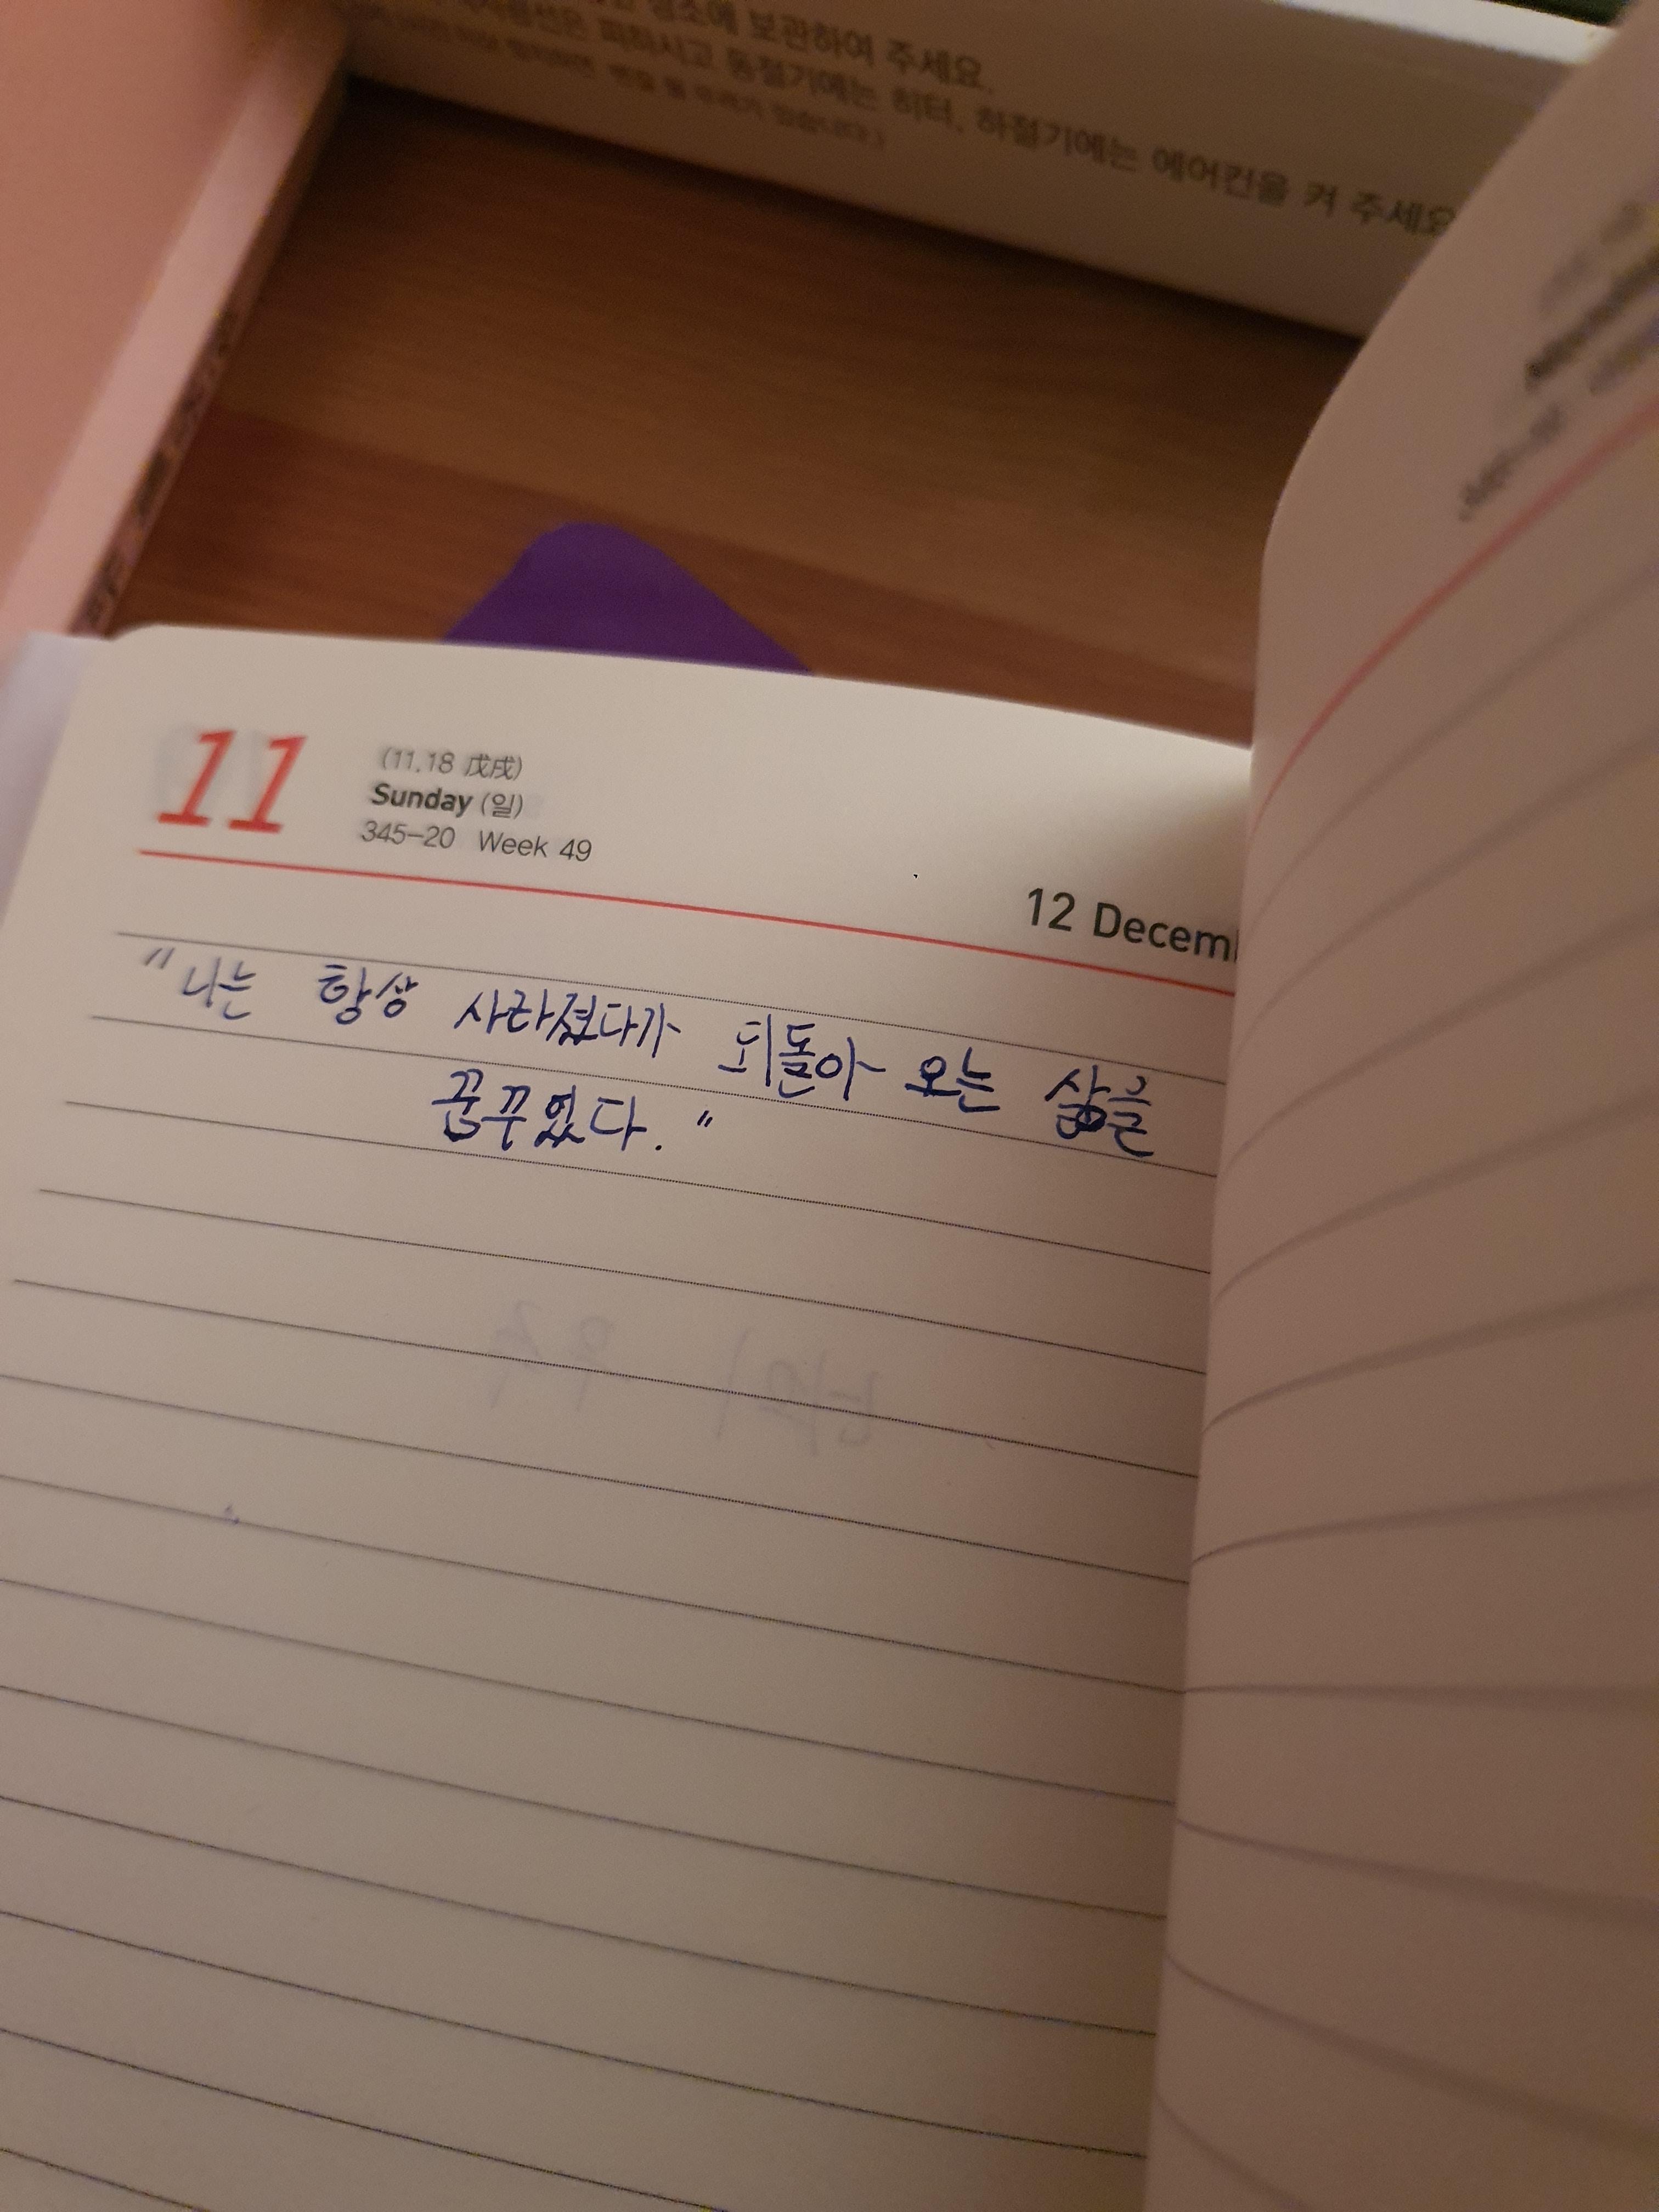 보관하여 주세요.
피하시고 동절기에는 히터, 하절기에는 에어컨을 켜 주세요
11
(11.18 戊戌)
Sunday (일)
345-20 Week 49
12 Decem
"나는 항상 사라졌다가 되돌아 오는 삶을
꿈꾸었다."